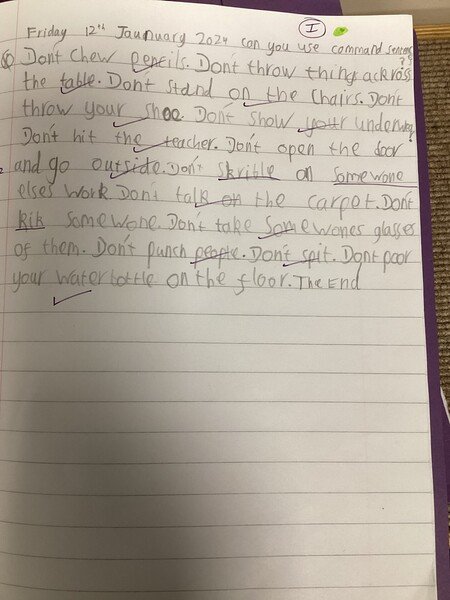 I
Friday 12th Jaunuary 2024 can you use command sentens
??
Don't chew pencils. Don't throw thing ackross
the table. Don't stand on the chairs. Don't
throw your shoe Don't show your underwey
Dont hit the teacher. Don't open the door
and go outside. Don't skrible on somewone
elses work. Don't talk on the carpet. Don't
kik somewone. Don't take somewones glasses
of them. Don't punch people. Don't spit. Dont poor
your waterbottle on the floor. The End